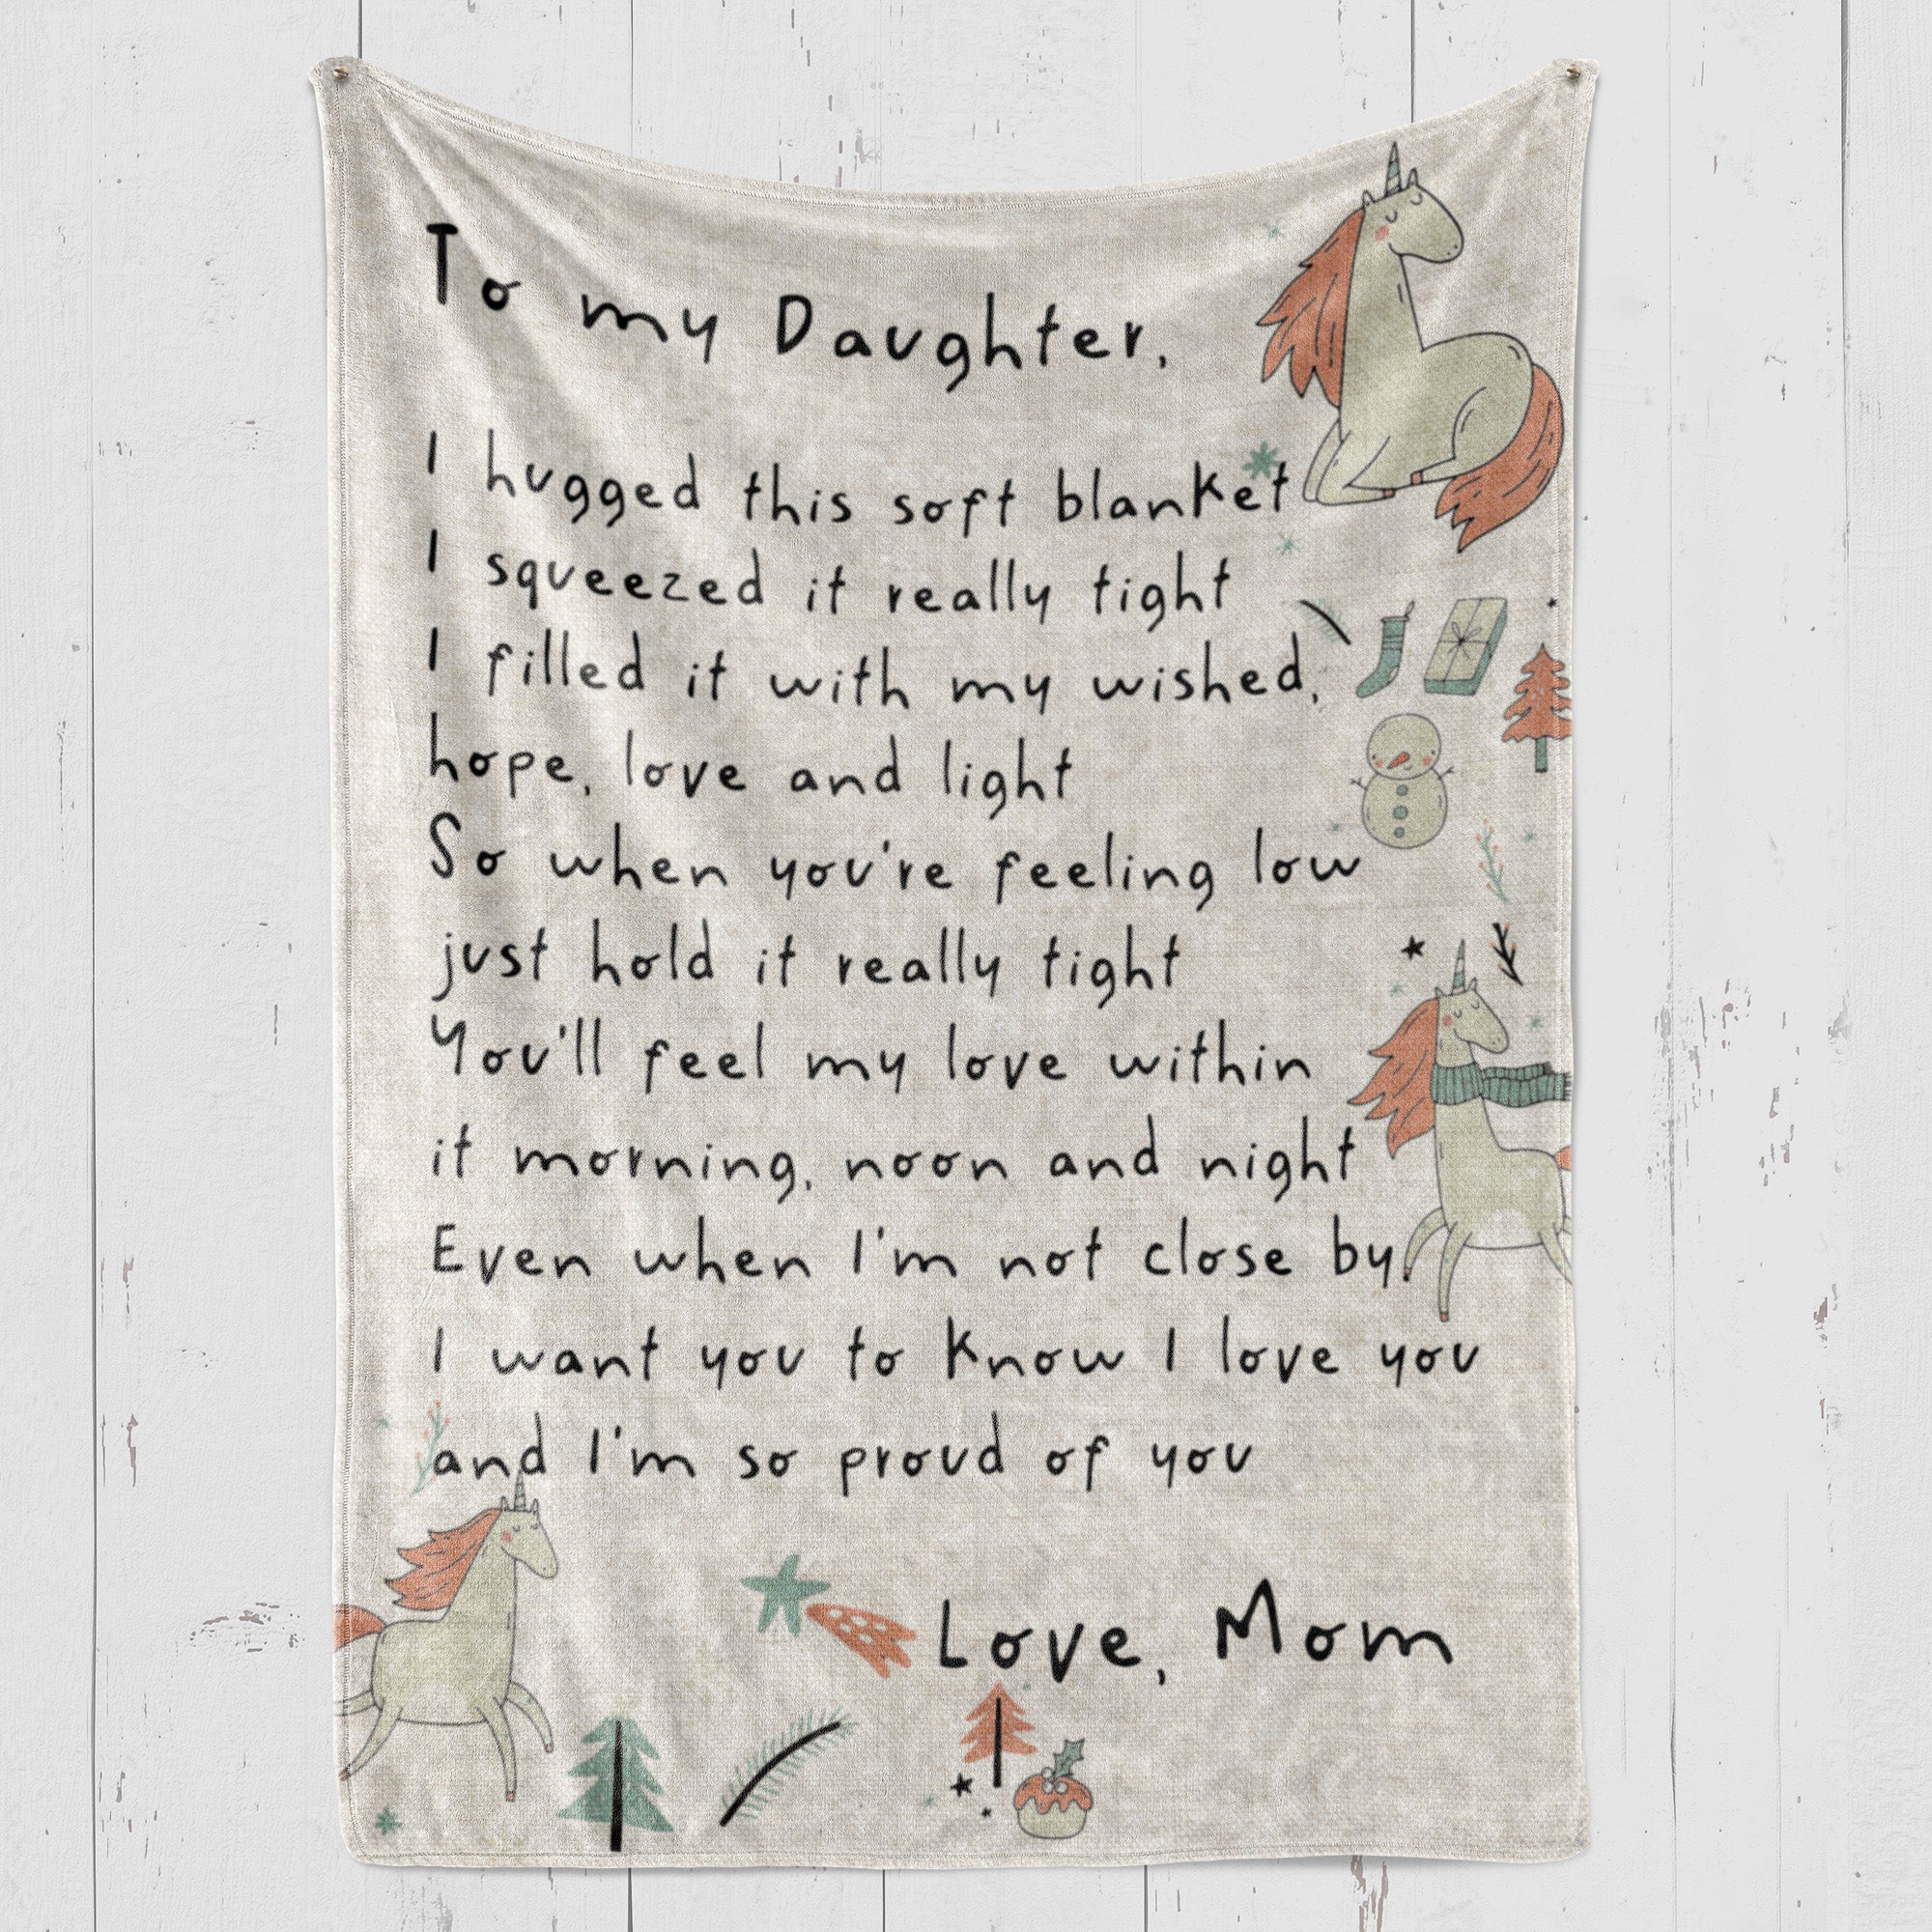 To my Daughter,
I hugged this soft blanket
I squeezed it really tight
I filled it with my wished,
hope, love and light
So when you're feeling low
just hold it really tight
You'll feel my love within
it morning, noon and night
Even when I'm not close by,
I want you to know I love you
and I'm so proud of you
Love, Mom